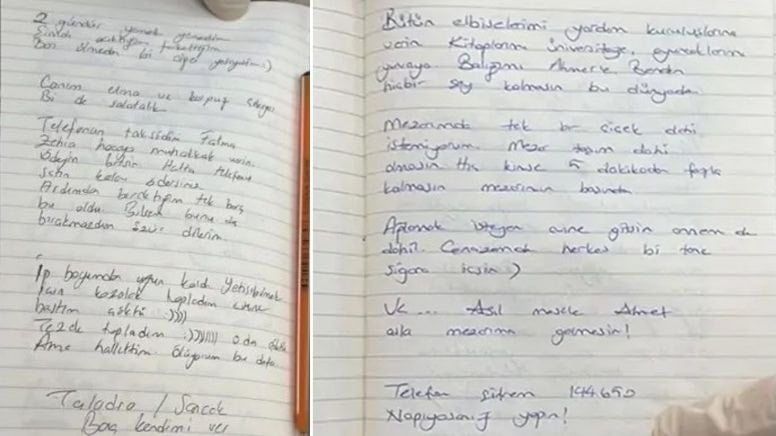 2 gündür yemek yemedim
Son ölmeden bi
Canım elma ve karpuz
Bi de salatalık
Telefonun taksidini Fatma
Zehra hocaya muhakkak verin.
Ödeyin bitsin Hatta telefonu
satın kolay ödersiniz
Ardımdan bıraktığım tek borç
bu oldu. Bilsem bunu da
bırakmazdım özür dilerim
İp boyumdan uzun kaldı Yetişebilmek
için kozalak topladım üstüne
bastım :))))
Te2de topladım :))))!!!! o da
Ama hallettim. Ölüyorum bu defa
/
Boş kendimi ver
Bütün elbiselerimi yardım kuruluşlarına
verin Kitaplarımı üniversiteye, oyuncaklarımı
yuvaya. Balığımı Ahmet'e. Benden
hiçbir şey kalmasın bu dünyada
Mezarımda tek bir çiçek dahi
istemiyorum. Mezar taşım dahi
olmasın Hiç kimse 5 dakikadan fazla
kalmasın mezarımın başında
Ağlamak isteyen evine gitsin annem de
dahil. Cenazemde herkes bi tane
sigara içsin :)
Ve... Asıl mesele Ahmet
asla mezarıma gelmesin!
Telefon şifrem 144650
Napıyosanız yapın!